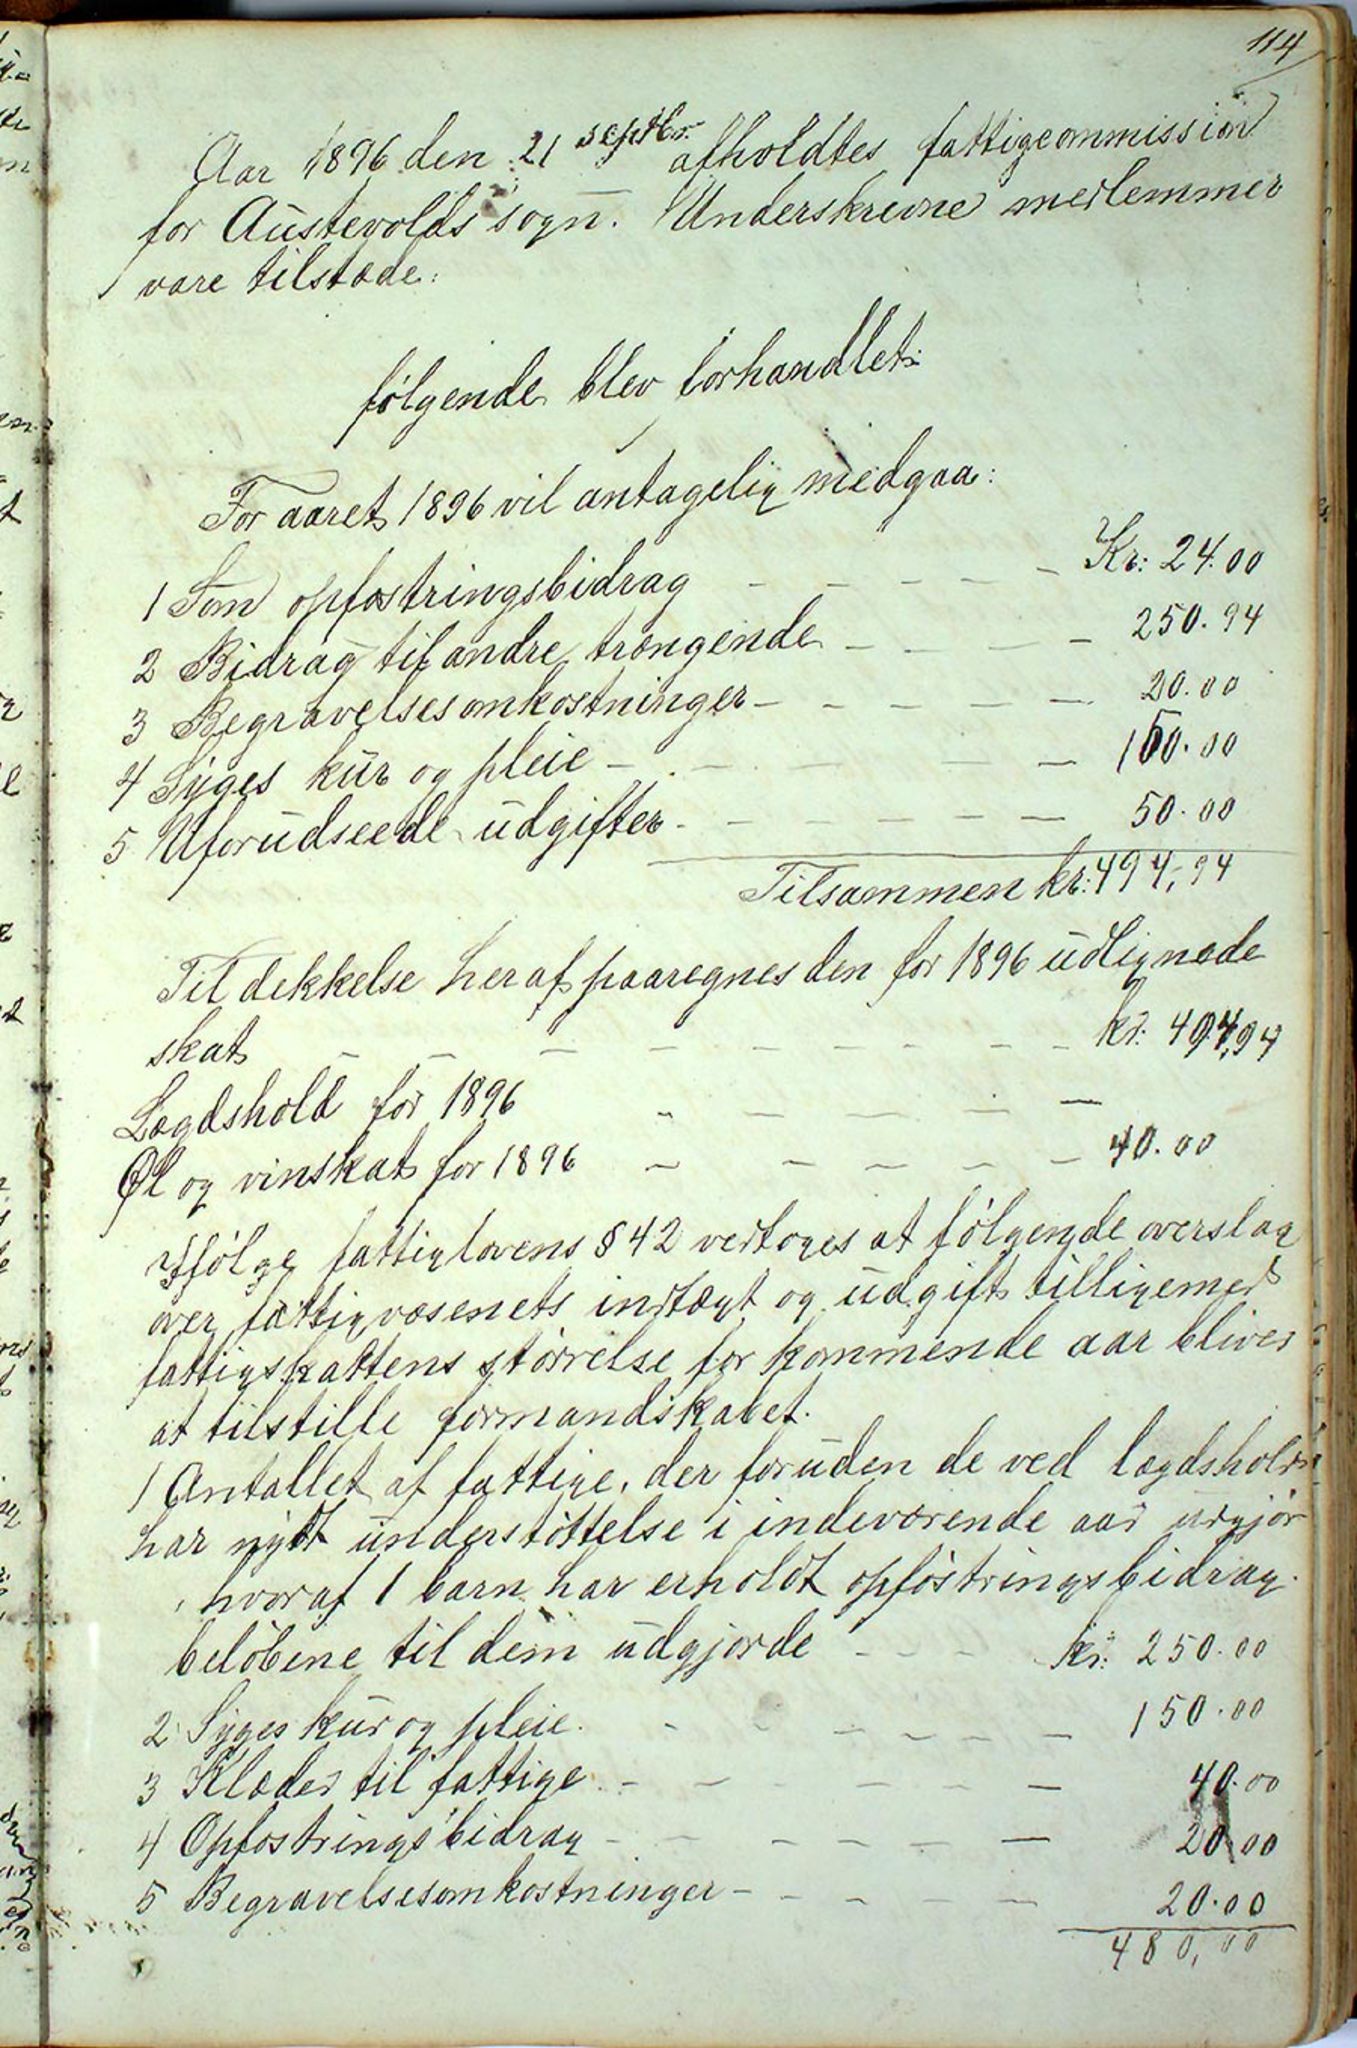 114
Aar 1896 den 21 septbr. afholdtes fattigcommission
for Austevolds sogn. Underskrevne medlemmer
vare tilstæde:
følgende blev forhandlet:
For aaret 1896 vil antagelig medgaa:
1 Som opfostringsbidrag - - - - - Kr: 24.00
2 Bidrag til andre trængende - - - - 250.94
3 Begravelsesomkostninger - - - - - 20.00
4 Syges kur og pleie - - - - - 150.00
5 Uforudseede udgifter - - - - - 50.00
Tilsammen kr: 494,94
Til dekkelse heraf paaregnes den for 1896 udlignede
skat - - - - - - - - kr. 494,94
Lægdshold for 1896 - - - - -
Øl og vinskat for 1896 - - - - - 40.00
Ifølge fattiglovens § 42 vedtoges at følgende overslag
over fattigvæsenets indtægt og udgift tilligemed
fattigskattens størrelse for kommende aar bliver
at tilstille formandskabet.
1 Antallet af fattige, der foruden de ved lægdshold
har nydt understøttelse i indeværende aar udgjør
, hvoraf 1 barn har erholdt opfostringsbidrag.
beløbene til dem udgjorde - - - kr: 250.00
2 Syges kur og pleie. - - - - - 150.00
3 Klæder til fattige - - - - - 40.00
4 Opfostringsbidrag - - - - - - 20.00
5 Begravelsesomkostninger - - - - - 20.00
480,00